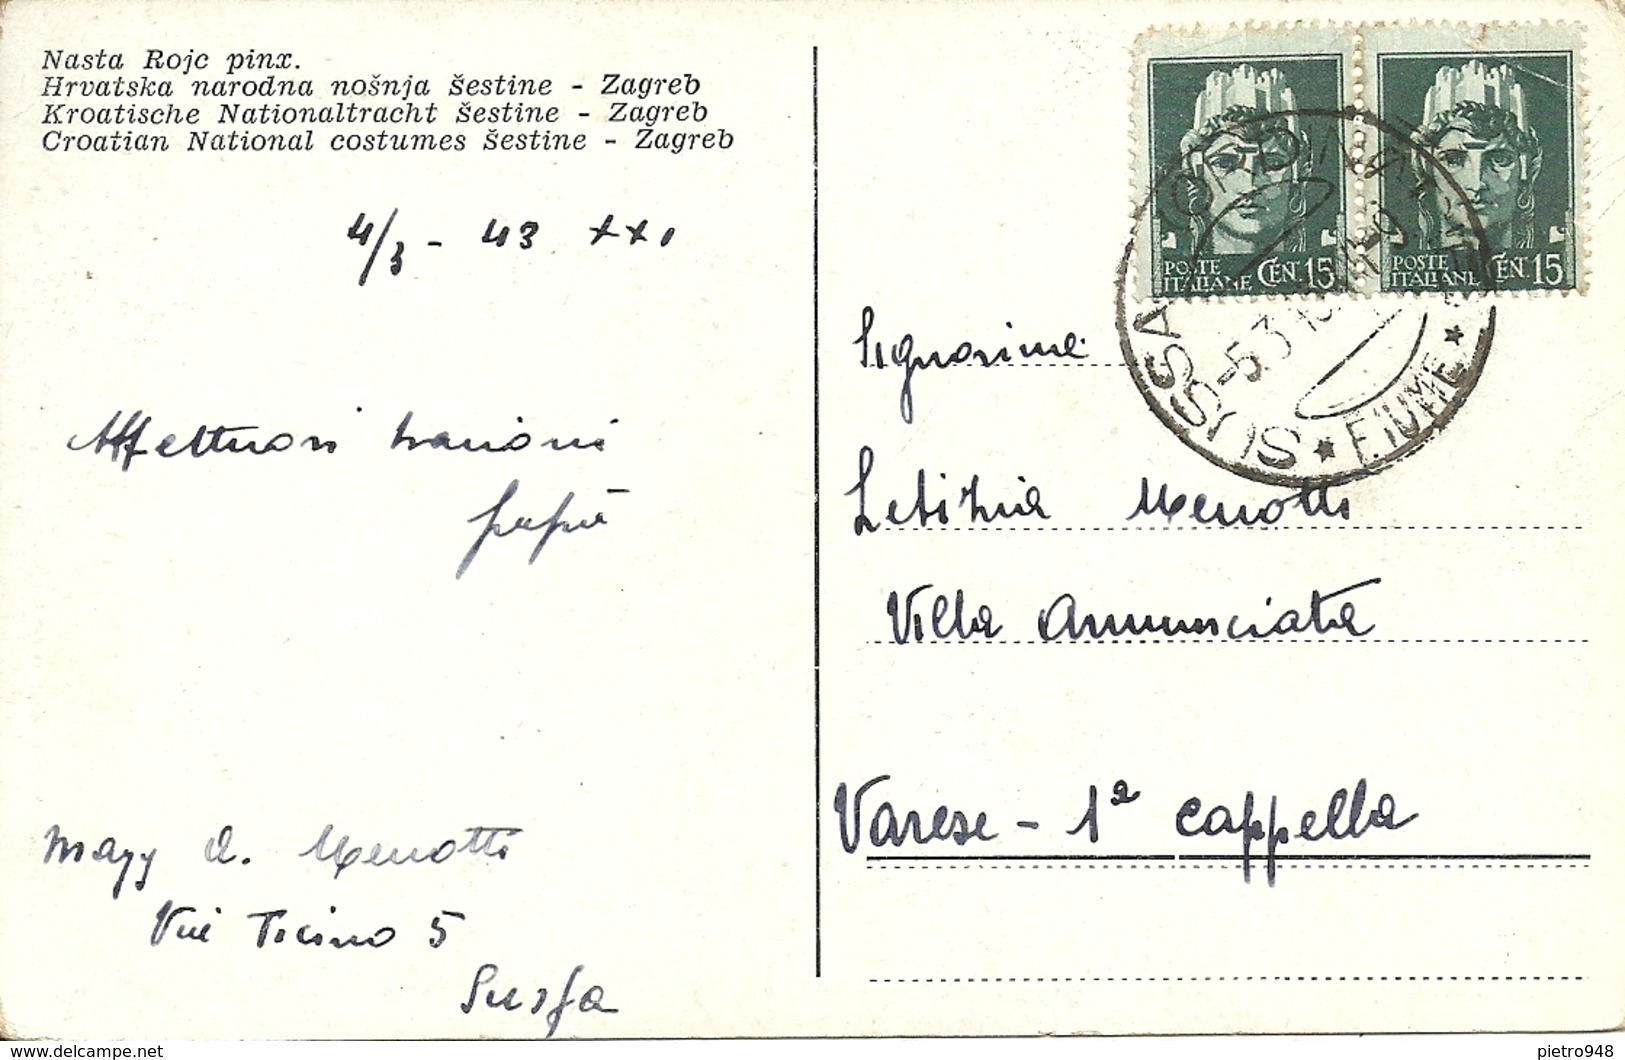 Nasta Rojc pinx.
Hrvatska narodna nošnja šestine - Zagreb
Kroatische Nationaltracht šestine - Zagreb
Croatian National costumes šestine - Zagreb
4/3 - 43 XXI
Affettuosi bacioni
papà
Magg A. Menotti
Via Ticino 5
Susja
POSTE ITALIANE CEN. 15
POSTE ITALIANE CEN. 15
SUSSA
-5.3
★ FIUME ★
Signorine
Letizia Menotti
Villa Annunciata
Varese - 1ª cappella
pietro948
delcampe.net